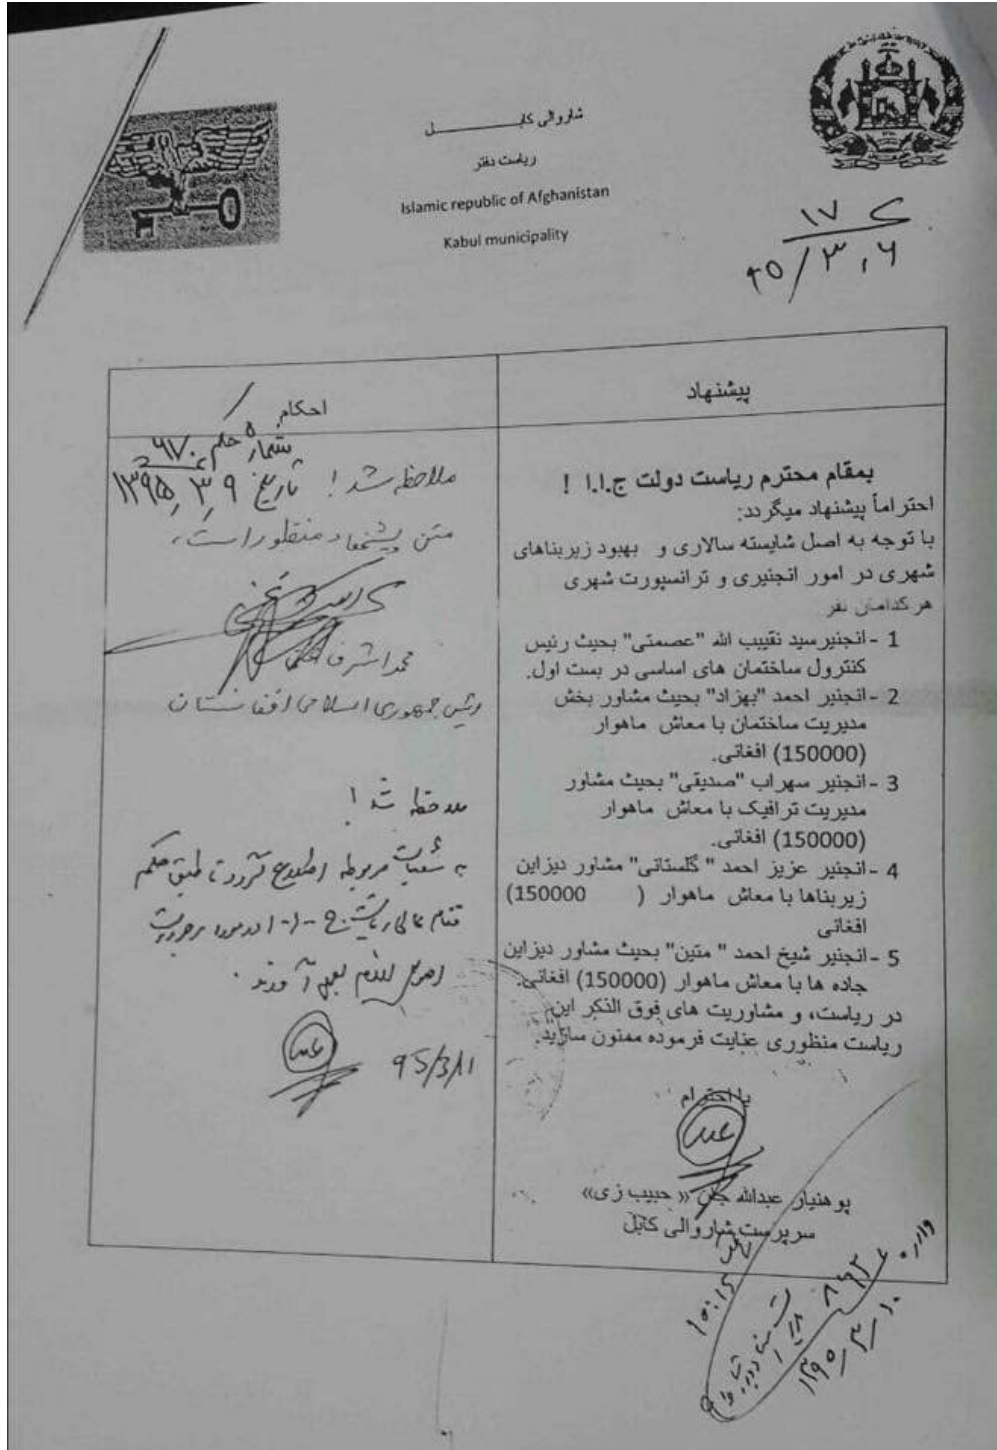 شاروالی کابـــــل
ریاست دفتر
Islamic republic of Afghanistan
Kabul municipality
۱۷
۹۵/۳,۶
پیشنهاد
بمقام محترم ریاست دولت ج.ا.ا !
احتراماً پیشنهاد میگردد:
با توجه به اصل شایسته سالاری و بهبود زیربناهای
شهری در امور انجنیری و ترانسپورت شهری
هر کدامان نفر
1 -انجنیرسید نقیبب الله "عصمتی" بحیث رئیس
کنترول ساختمان های اساسی در بست اول.
2 -انجنیر احمد "بهزاد" بحیث مشاور بخش
مدیریت ساختمان با معاش ماهوار
(150000) افغانی.
3 -انجنیر سهراب "صدیقی" بحیث مشاور
مدیریت ترافیک با معاش ماهوار
(150000) افغانی.
4 -انجنیر عزیز احمد " گلستانی" مشاور دیزاین
زیربناها با معاش ماهوار ( 150000)
افغانی
5 -انجنیر شیخ احمد " متین" بحیث مشاور دیزاین
جاده ها با معاش ماهوار (150000) افغانی.
در ریاست، و مشاوریت های فوق الذکر این
ریاست منظوری عنایت فرموده ممنون سازید.
با احترام
پوهنیار عبدالله جان « حبیب زی»
سرپرست شاروالی کابل
احکام
شماره حکم ۶۷۰
ملاحظه شد! تاریخ ۱۳۹۵,۳,۹
متن پیشنهاد منظور است،
محمد اشرف غنی
رئیس جمهوری اسلامی افغانستان
ملاحظه شد!
به شعبات مربوطه اطلاع گردد تا طبق حکم
مقام عالی ریاست ج-ا-ا در مورد
لازم بعمل آورند.
95/3/11
وارده
۸۶۳
۱۳۹۵/۳/۱۰
10:15